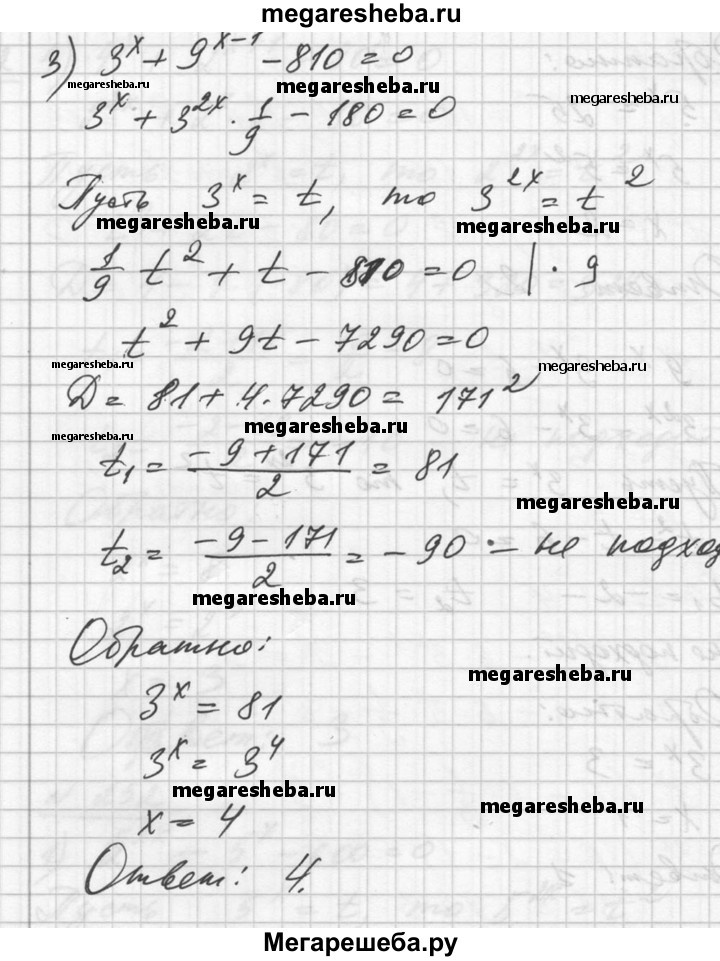 megaresheba.ru
3) 3^x + 9^{x-1} - 810 = 0
megaresheba.ru megaresheba.ru megaresheba.ru
3^x + 3^{2x} · 1/9 - 180 = 0
Пусть 3^x = t, то 3^{2x} = t^2
megaresheba.ru megaresheba.ru
1/9 t^2 + t - 810 = 0 | · 9
t^2 + 9t - 7290 = 0
megaresheba.ru megaresheba.ru
D = 81 + 4 · 7290 = 171^2
megaresheba.ru megaresheba.ru
t_1 = (-9 + 171)/2 = 81
megaresheba.ru
t_2 = (-9 - 171)/2 = -90 - не подход
megaresheba.ru
Обратно:
megaresheba.ru
3^x = 81
3^x = 3^4
megaresheba.ru megaresheba.ru
x = 4
Ответ: 4.
Мегарешеба.ру